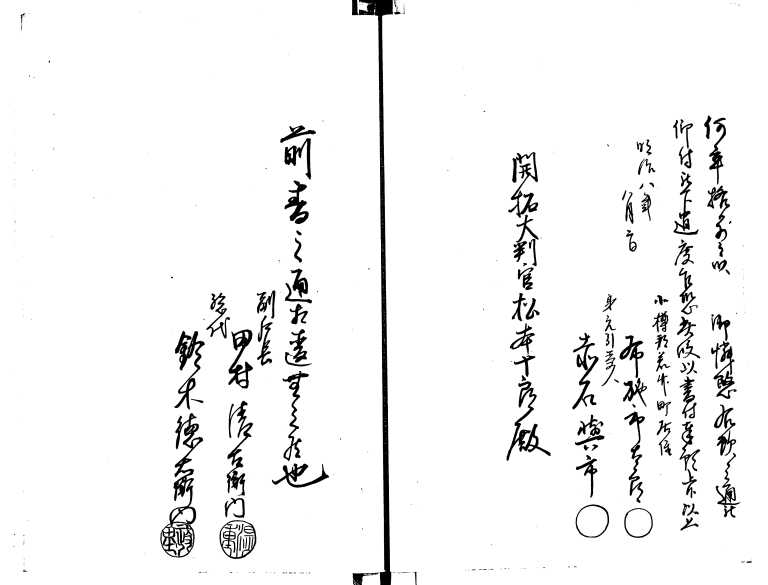 何卒格別之以 御憐愍右歎之通被
仰付被下置度乍恐此段以書付奉願上候以上
明治八年
八月二日
小樽郡若竹町居住
布施市太郎
身元引受人
赤石與市
開拓大判官松本十郎殿
前書之通相違無之候也
副戸長
田村清右衛門
総代
鈴木徳右衛門